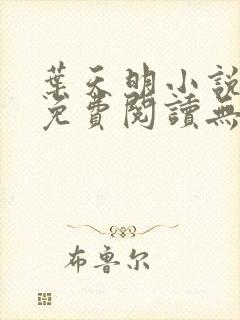 葉天明小說
免費閱讀無
布鲁尔